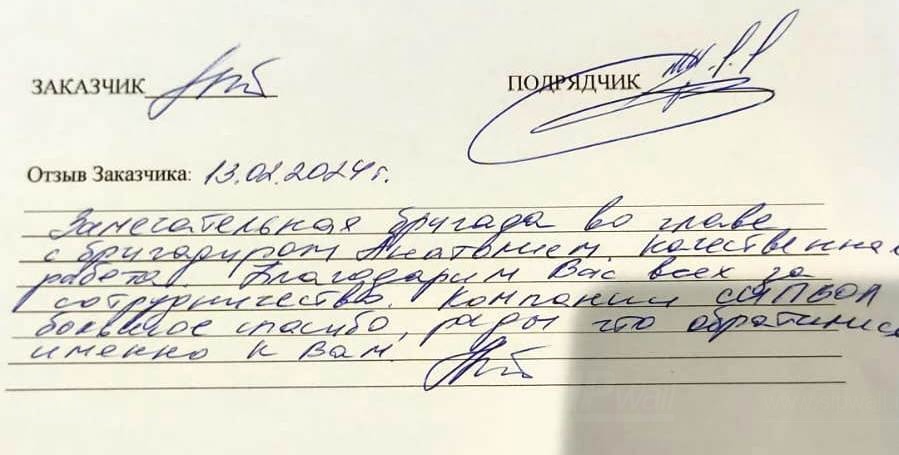 ЗАКАЗЧИК ПОДРЯДЧИК
Отзыв Заказчика: 13.02.2024г.
Замечательная бригада во главе
с бригадиром Анатолием. Качественная
работа. Благодарим Вас всех за
сотрудничество. Компании
большое спасибо, рады что обратились
именно к Вам.